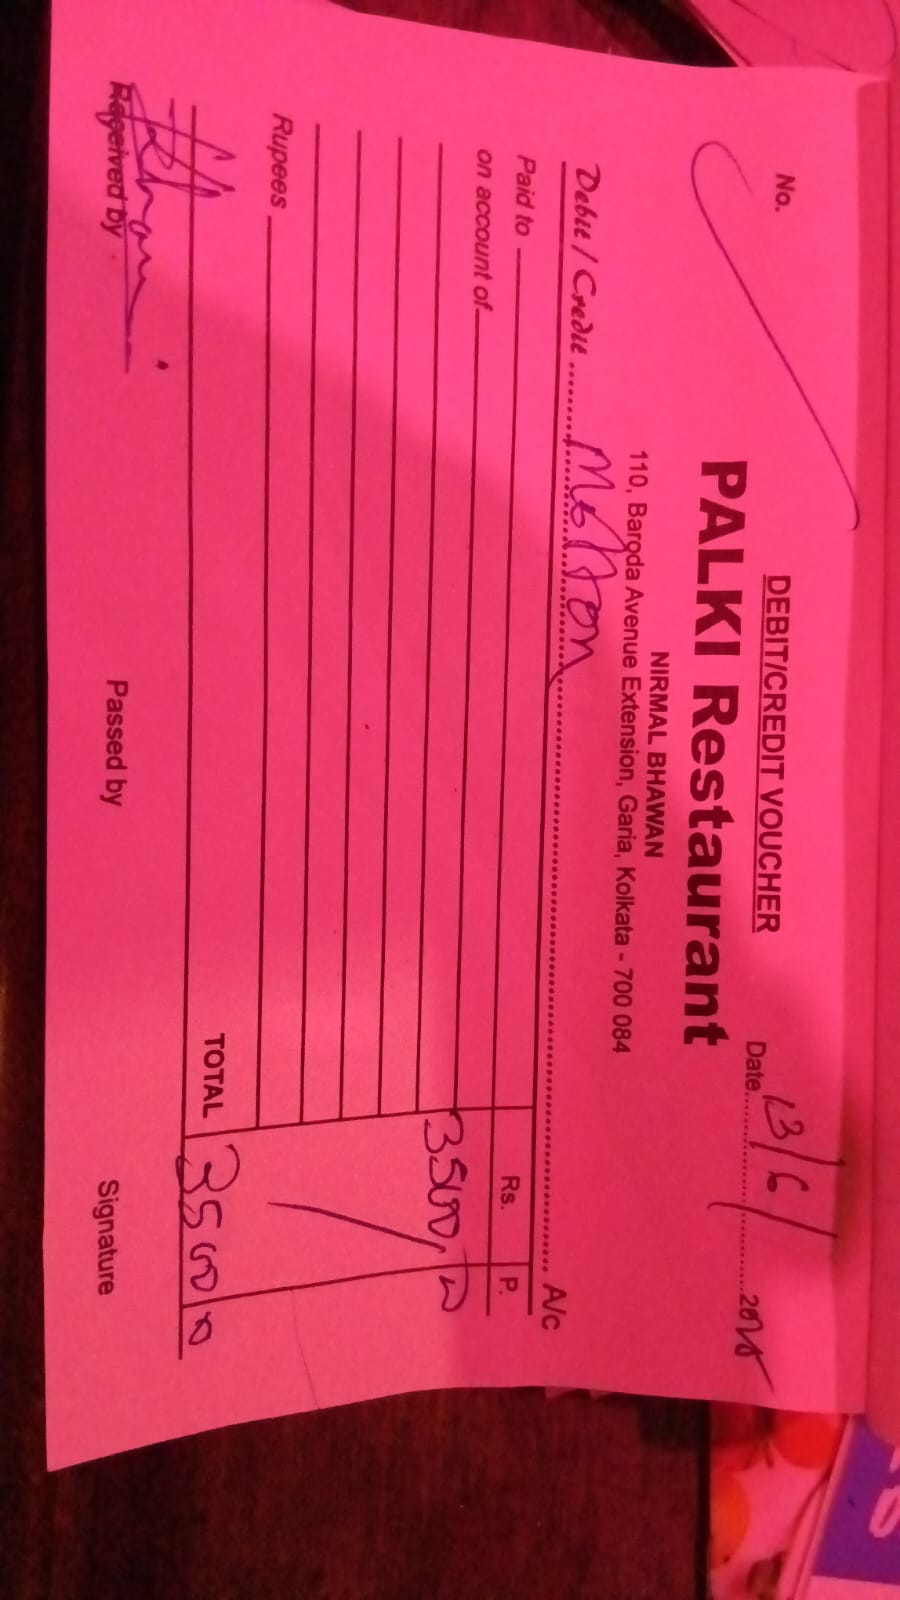 DEBIT/CREDIT VOUCHER
No. Date 13/6/ 2025
PALKI Restaurant
NIRMAL BHAWAN
110, Baroda Avenue Extension, Garia, Kolkata - 700 084
Debit / Credit Mutton A/c
Paid to Rs. P.
on account of
3500
Rupees
TOTAL 3500
Received by Passed by Signature